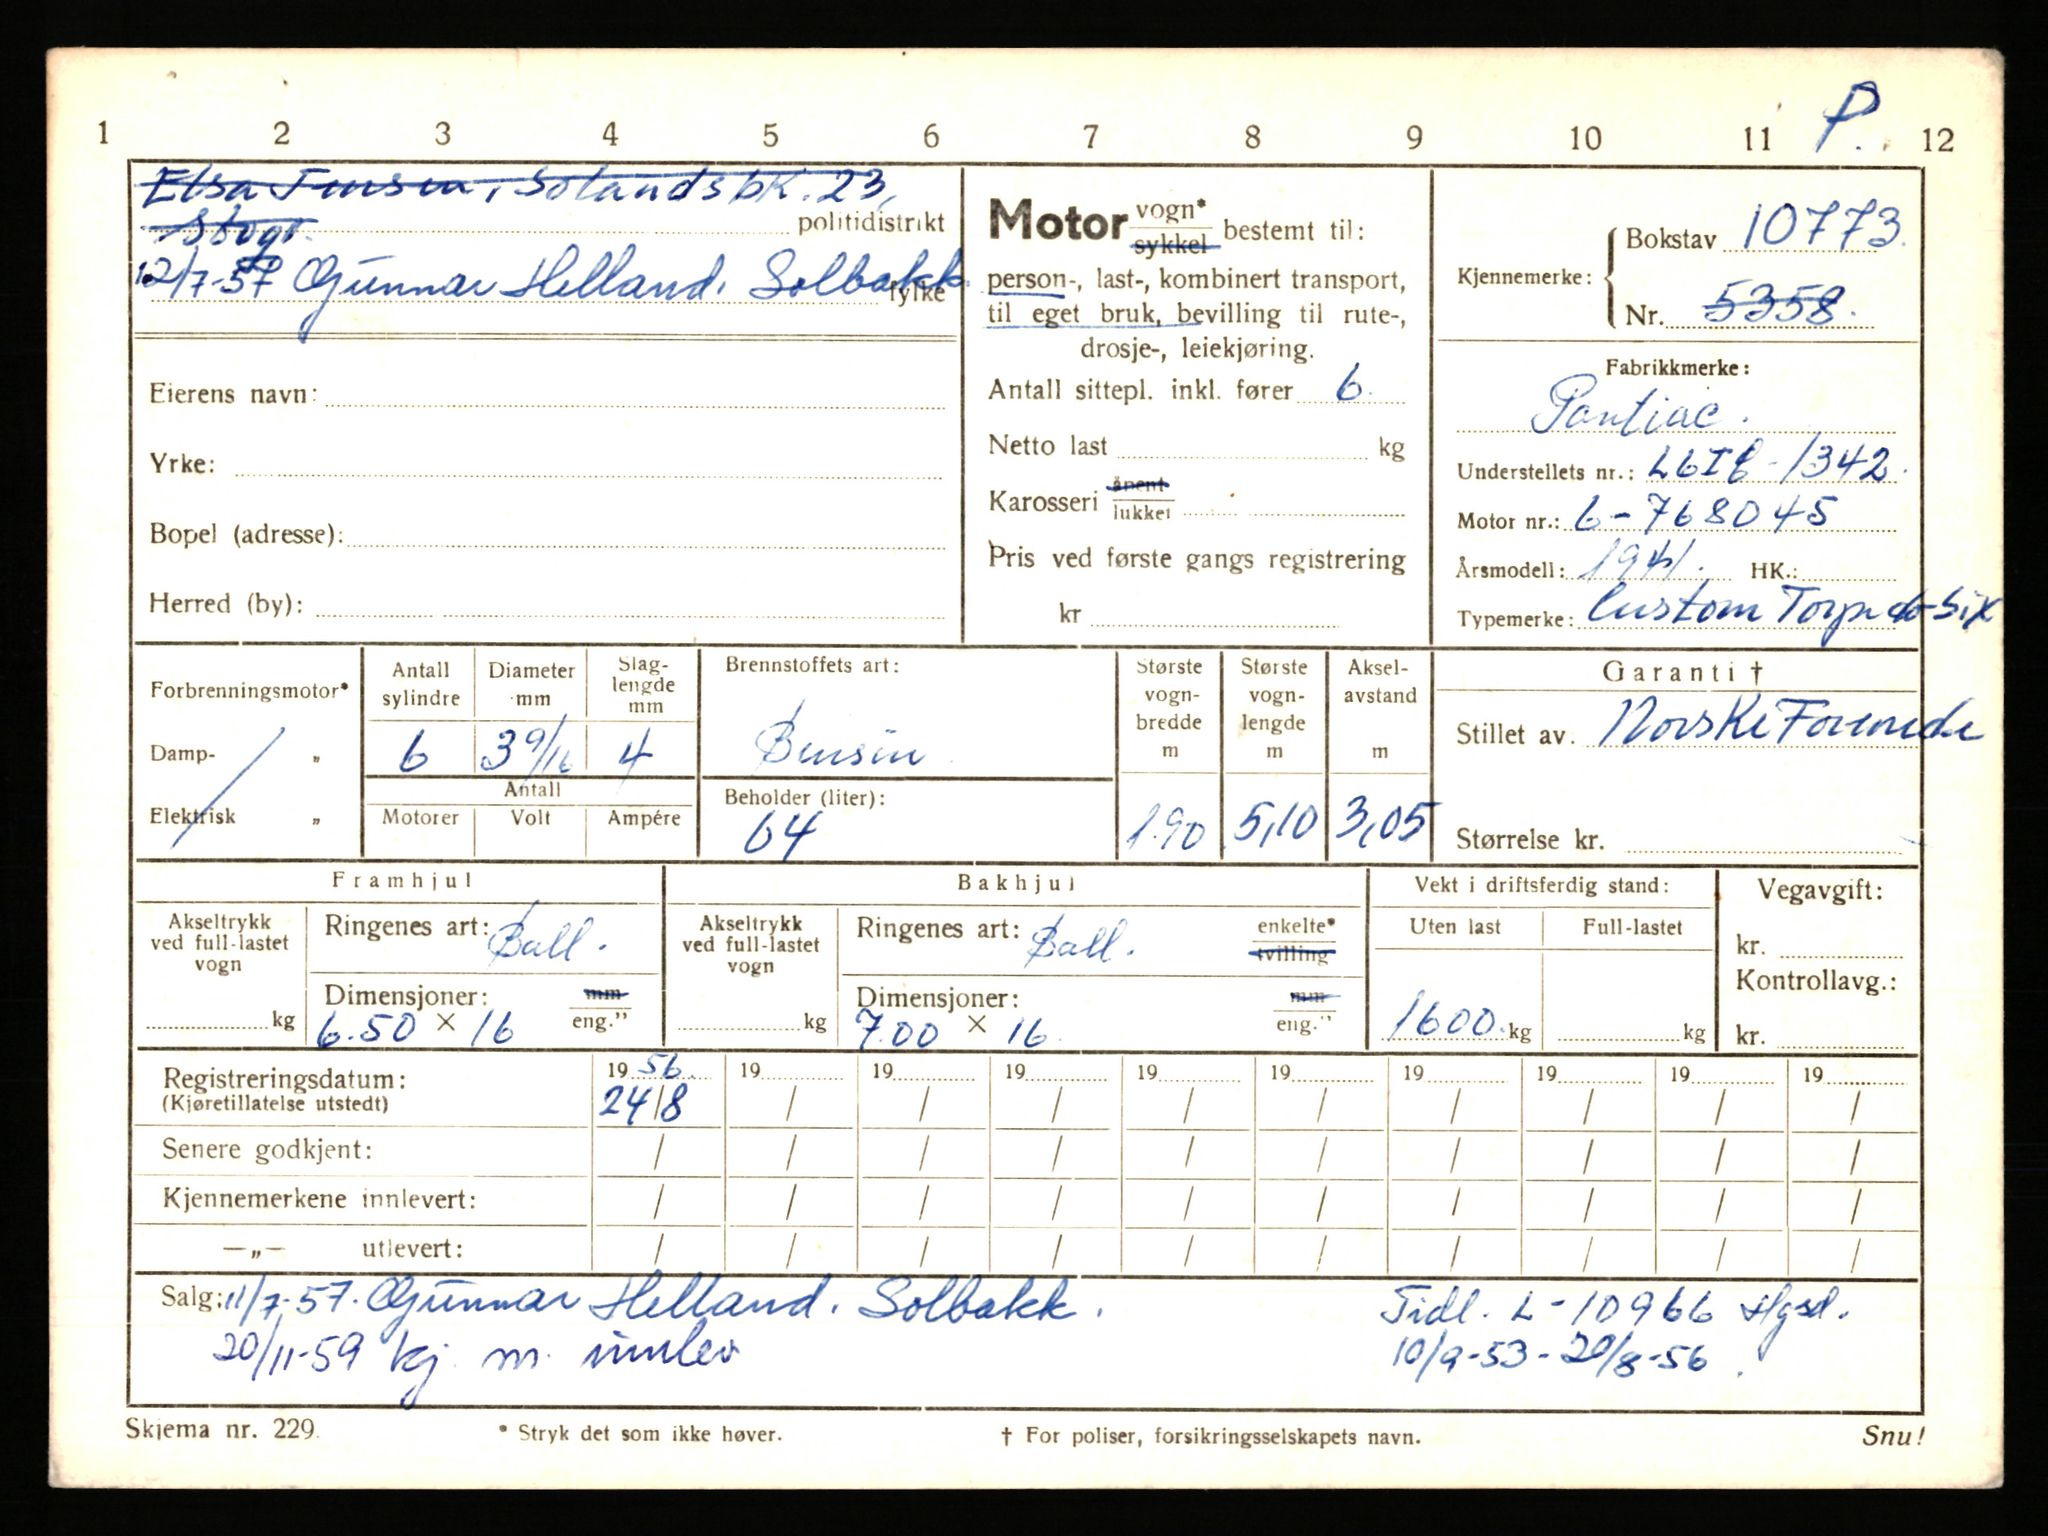 P.
1 2 3 4 5 6 7 8 9 10 11 12
Elsa Jensen, Solandsbk. 23,
politidistrikt
12/7-57 Gunnar Helland. Solbakk.
fylke
Eierens navn:
Yrke:
Bopel (adresse):
Herred (by):
Motor vogn* sykkel bestemt til:
person-, last-, kombinert transport,
til eget bruk, bevilling til rute-,
drosje-, leiekjøring.
Antall sittepl. inkl. fører 6.
Netto last kg
Karosseri åpent lukket
Pris ved første gangs registrering
kr
Kjennemerke:
Bokstav 10773.
Nr. 5358.
Fabrikkmerke:
Pontiac.
Understellets nr.: -1342.
Motor nr.: 6-768045
Årsmodell: 1941. HK.:
Typemerke: Custom Torpedo-Six
Forbrenningsmotor*
Damp- „
Elektrisk „
Antall sylindre
Diameter mm
Slag-lengde mm
6 3 9/16 4
Antall
Motorer Volt Ampére
Brennstoffets art:
Bensin
Beholder (liter):
64
Største vogn-bredde m
1.90
Største vogn-lengde m
5,10
Aksel-avstand m
3,05
Garanti †
Stillet av. Norske Forenede
Størrelse kr.
Framhjul
Akseltrykk ved full-lastet vogn
kg
Ringenes art: Ball.
Dimensjoner: mm eng."
6.50 × 16
Bakhjul
Akseltrykk ved full-lastet vogn
kg
Ringenes art: Ball. enkelte* tvilling
Dimensjoner: mm eng."
7.00 × 16.
Vekt i driftsferdig stand:
Uten last Full-lastet
1600. kg kg
Vegavgift:
kr.
Kontrollavg.:
kr.
Registreringsdatum: 19 56. 19 19 19 19 19 19 19 19 19
(Kjøretillatelse utstedt) 24/8 / / / / / / / / /
Senere godkjent: / / / / / / / / / /
Kjennemerkene innlevert: / / / / / / / / / /
—„— utlevert: / / / / / / / / / /
Salg: 11/7-57. Gunnar Helland. Solbakk.
20/11-59 kj. m. innlev
Tidl. L-10966 Hgsd.
10/9-53-20/8-56.
Skjema nr. 229.
* Stryk det som ikke høver.
† For poliser, forsikringsselskapets navn.
Snu!